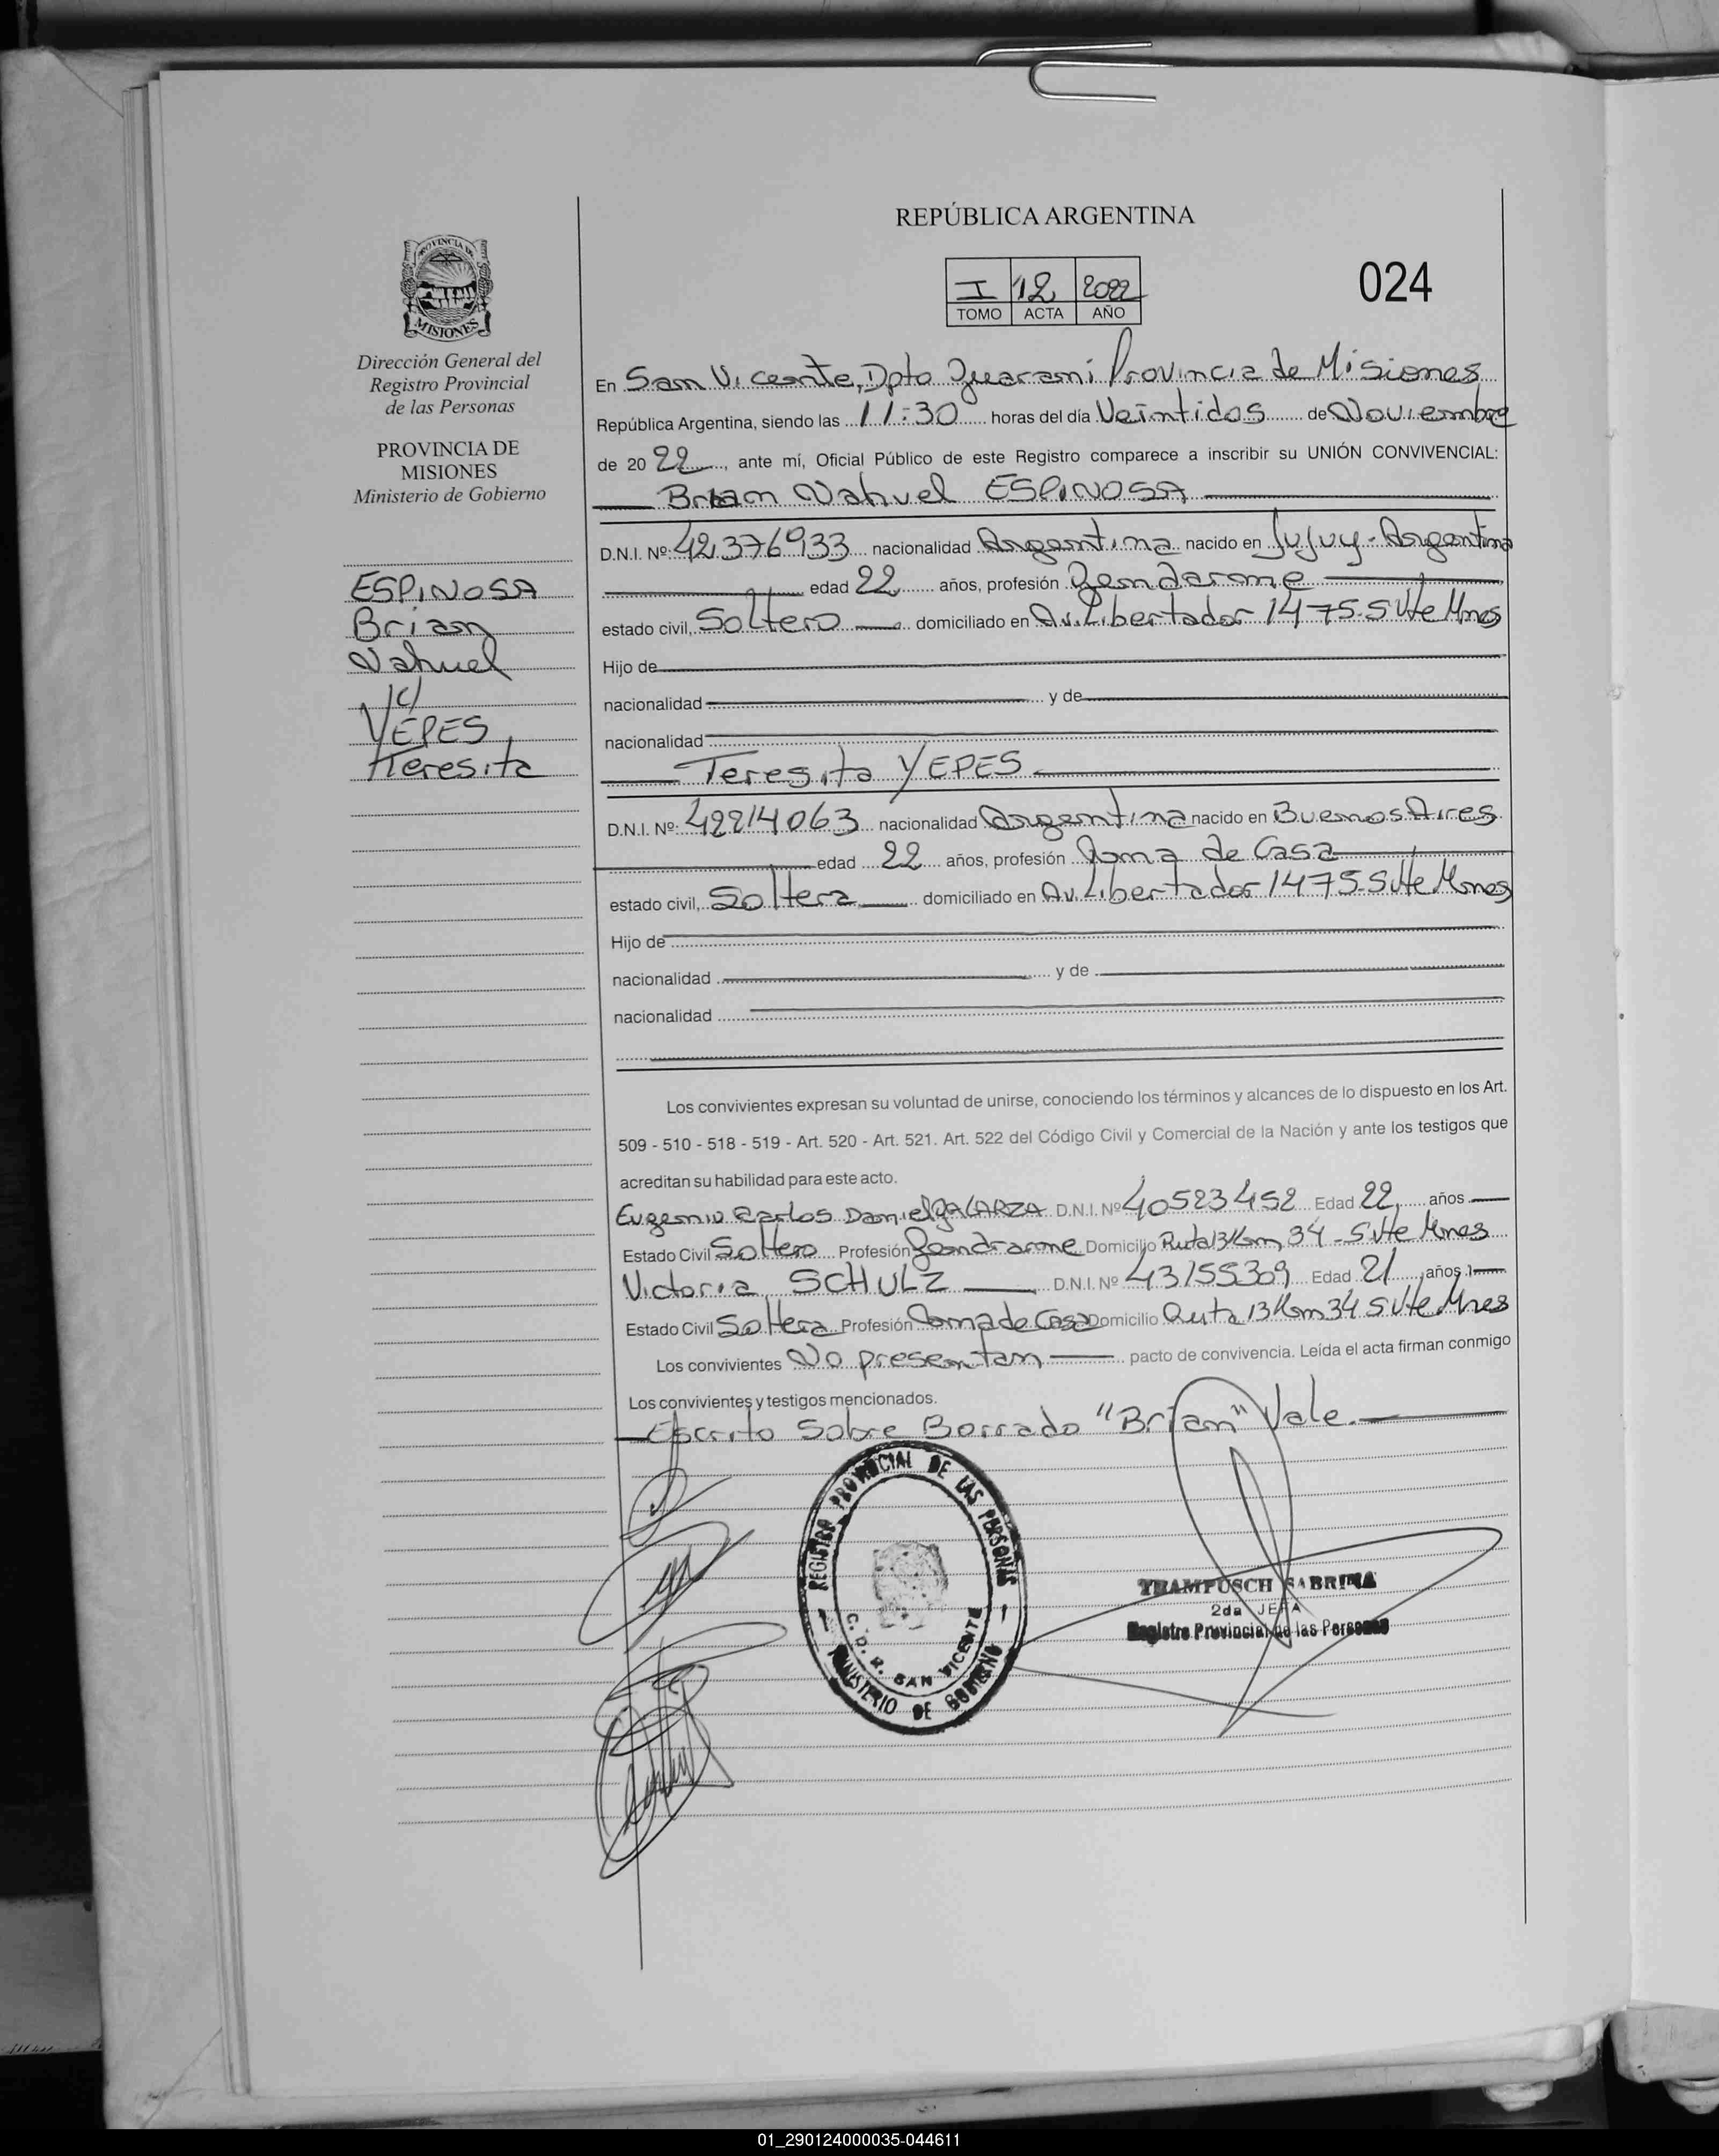 REPÚBLICA ARGENTINA
I 12 2022
TOMO ACTA AÑO
024
PROVINCIA DE
MISIONES
Dirección General del
Registro Provincial
de las Personas
PROVINCIA DE
MISIONES
Ministerio de Gobierno
ESPINOSA
Brian
Nahuel
c/
YEPES
Teresita
En San Vicente, Dpto Guarani Provincia de Misiones
República Argentina, siendo las 11:30 horas del día Veintidos de Noviembre
de 2022, ante mí, Oficial Público de este Registro comparece a inscribir su UNIÓN CONVIVENCIAL:
Brian Nahuel ESPINOSA
D.N.I. Nº: 42.376933 nacionalidad Argentina nacido en Jujuy - Argentina
edad 22 años, profesión Gendarme
estado civil, Soltero domiciliado en Av. Libertador 1475 - S Vte Mnes
Hijo de
nacionalidad y de
nacionalidad
Teresita YEPES
D.N.I. Nº: 42214063 nacionalidad Argentina nacido en Buenos Aires
edad 22 años, profesión Ama de Casa
estado civil, Soltera domiciliado en Av. Libertador 1475 - S Vte Mnes
Hijo de
nacionalidad y de
nacionalidad
Los convivientes expresan su voluntad de unirse, conociendo los términos y alcances de lo dispuesto en los Art.
509 - 510 - 518 - 519 - Art. 520 - Art. 521. Art. 522 del Código Civil y Comercial de la Nación y ante los testigos que
acreditan su habilidad para este acto.
Eugenio Carlos Daniel GALARZA D.N.I. Nº 40523452 Edad 22, años
Estado Civil Soltero Profesión Gendrarme Domicilio Ruta 13 Km, 34 - S Vte Mnes
Victoria SCHULZ D.N.I. Nº 43155309 Edad 21, años
Estado Civil Soltera Profesión Ama de Casa Domicilio Ruta 13 Km 34 S Vte Mnes
Los convivientes No presentan pacto de convivencia. Leída el acta firman conmigo
Los convivientes y testigos mencionados.
Escrito Sobre Borrado "Brian" Vale.
REGISTRO PROVINCIAL DE LAS PERSONAS
C. D. R. SAN VICENTE
MINISTERIO DE GOBIERNO
TRAMPUSCH SABRINA
2da JEFA
Registro Provincial de las Personas
01_290124000035-044611